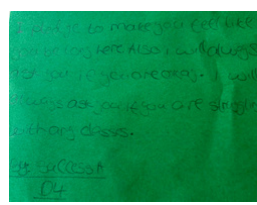 I pledge to make you feel like
you belong here Also i will always
ask you if you are okay. I will
always ask you if you are struggling
with any classes.
By: Success A
C4